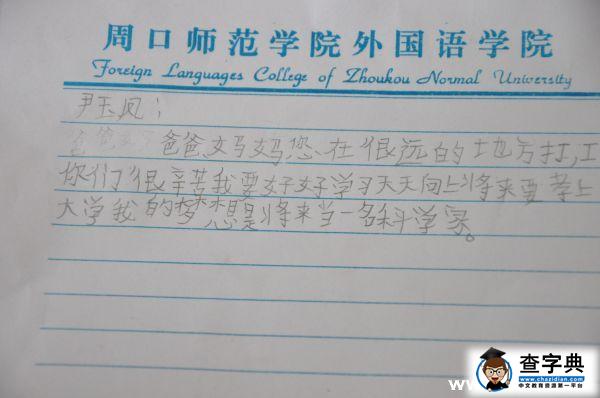 周口师范学院外国语学院
Foreign Languages College of Zhoukou Normal University
尹玉凤：
爸爸妈妈您在很远的地方打工
你们很辛苦我要好好学习天天向上将来要考上
大学我的梦想是将来当一名科学家。
查字典
www.chazidian.com
中文教育资源第一平台